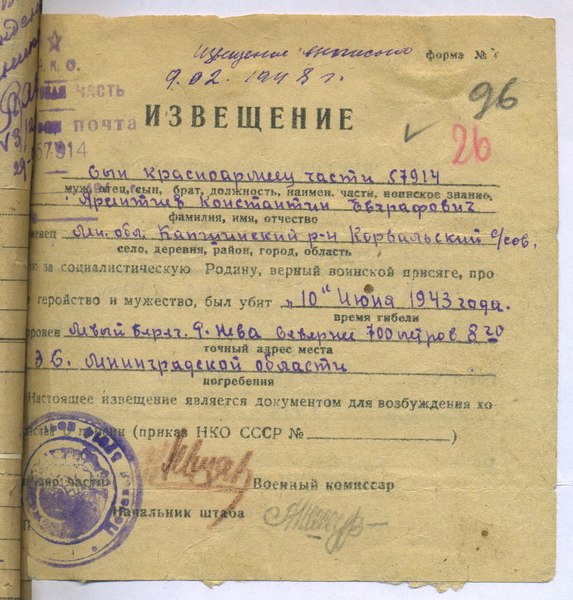 Извещение выписано форма №
9.02.1948 г.
96
Н. К. О.
ЧАСТЬ
почта
57914
ИЗВЕЩЕНИЕ
26
сын красноармеец части 57914
муж, отец, сын, брат, должность, наимен. части, воинское звание,
Арентив Константин Евграфович
фамилия, имя, отчество
женец Лен. обл. Капшинский р-н Корвальский с/сов.
село, деревня, район, город, область
ою за социалистическую Родину, верный воинской присяге, про
геройство и мужество, был убит „10" июня 1943 года.
время гибели
оронен левый берег р. Нева севернее 700 метров 8 го
точный адрес места
Э С. Ленинградской области
погребения
Настоящее извещение является документом для возбуждения хо
о пенсии (приказ НКО СССР №)
части
Военный комиссар
Начальник штаба